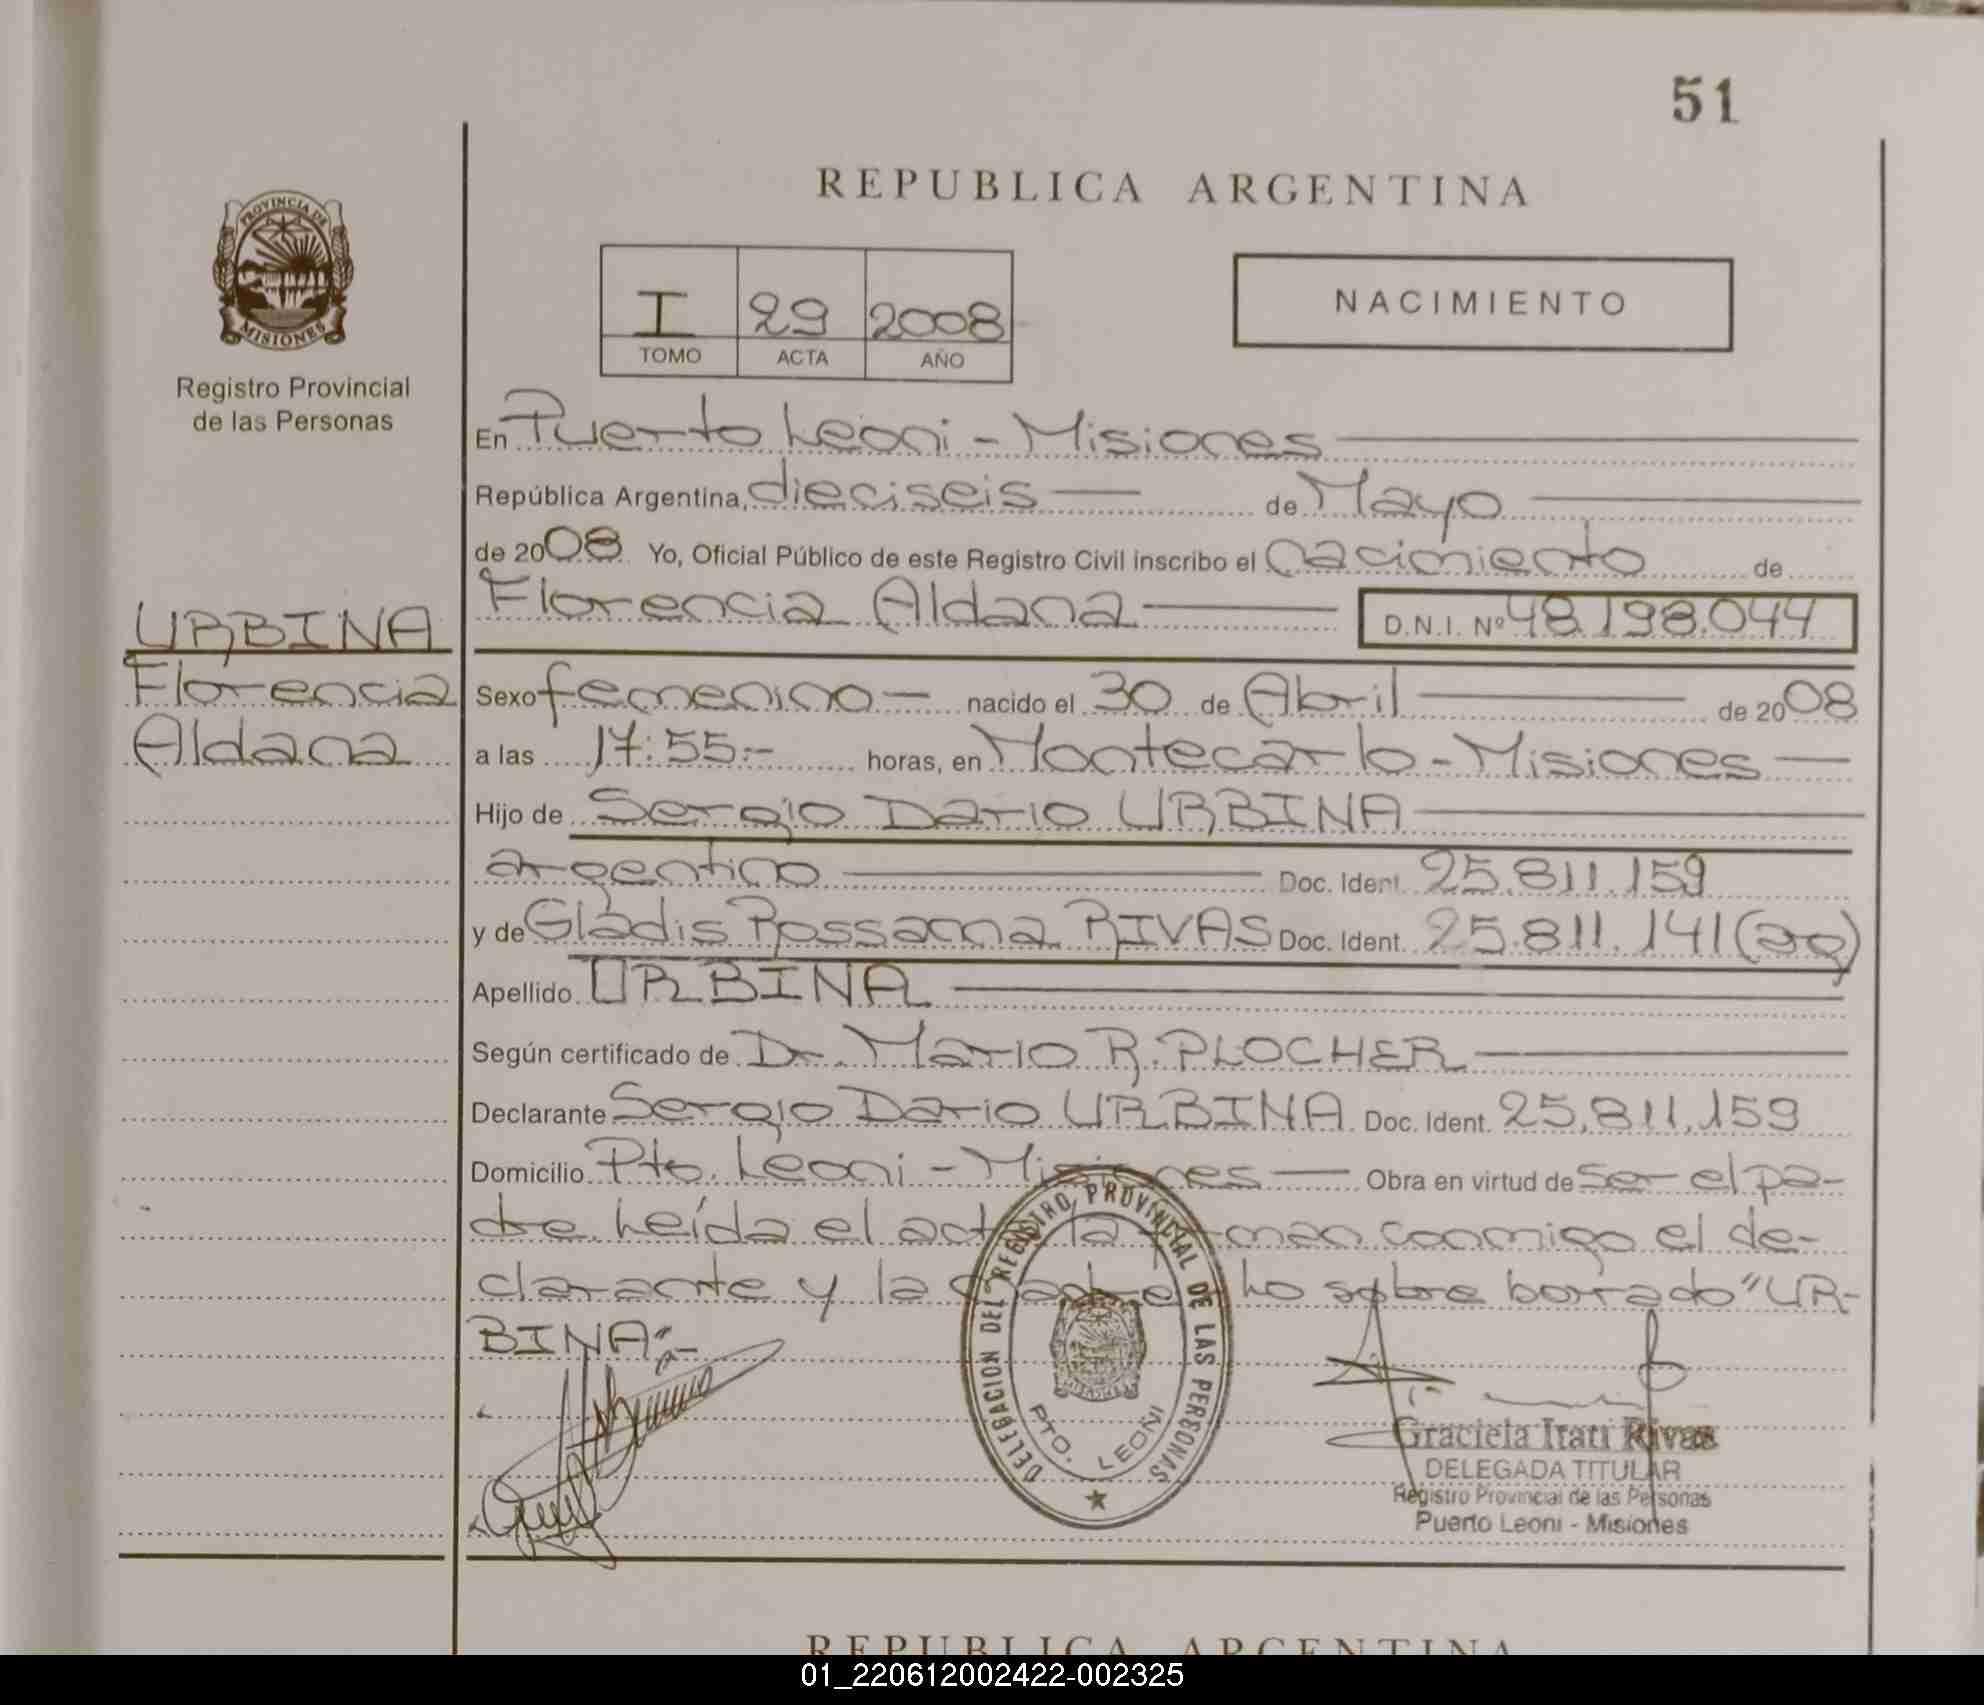 51
REPUBLICA ARGENTINA
PROVINCIA DE
MISIONES
Registro Provincial
de las Personas
I 29 2008
TOMO ACTA AÑO
NACIMIENTO
En Puerto Leoni - Misiones
República Argentina, dieciseis de Mayo
de 2008 Yo, Oficial Público de este Registro Civil inscribo el nacimiento de
Florencia Aldana D.N.I. Nº 48.198.044
URBINA
Florencia
Aldana
Sexo femenino nacido el 30 de Abril de 2008
a las 17:55.- horas, en Montecarlo - Misiones
Hijo de Sergio Dario URBINA
argentino Doc. Ident. 25.811.159
y de Gladis Rossanna RIVAS Doc. Ident. 25.811.141 (ag)
Apellido URBINA
Según certificado de Dr. Mario R. PLOCHER
Declarante Sergio Dario URBINA Doc. Ident. 25.811.159
Domicilio Pto. Leoni - Misiones Obra en virtud de ser el pa-
dre. Leída el acta la firman conmigo el de-
clarante y la madre. Lo sobre borrado "UR-
BINA".-
DELEGACION DEL REGISTRO PROVINCIAL DE LAS PERSONAS
MISIONES
PTO. LEONI
Graciela Irati Rivas
DELEGADA TITULAR
Registro Provincial de las Personas
Puerto Leoni - Misiones
REPUBLICA ARGENTINA
01_220612002422-002325